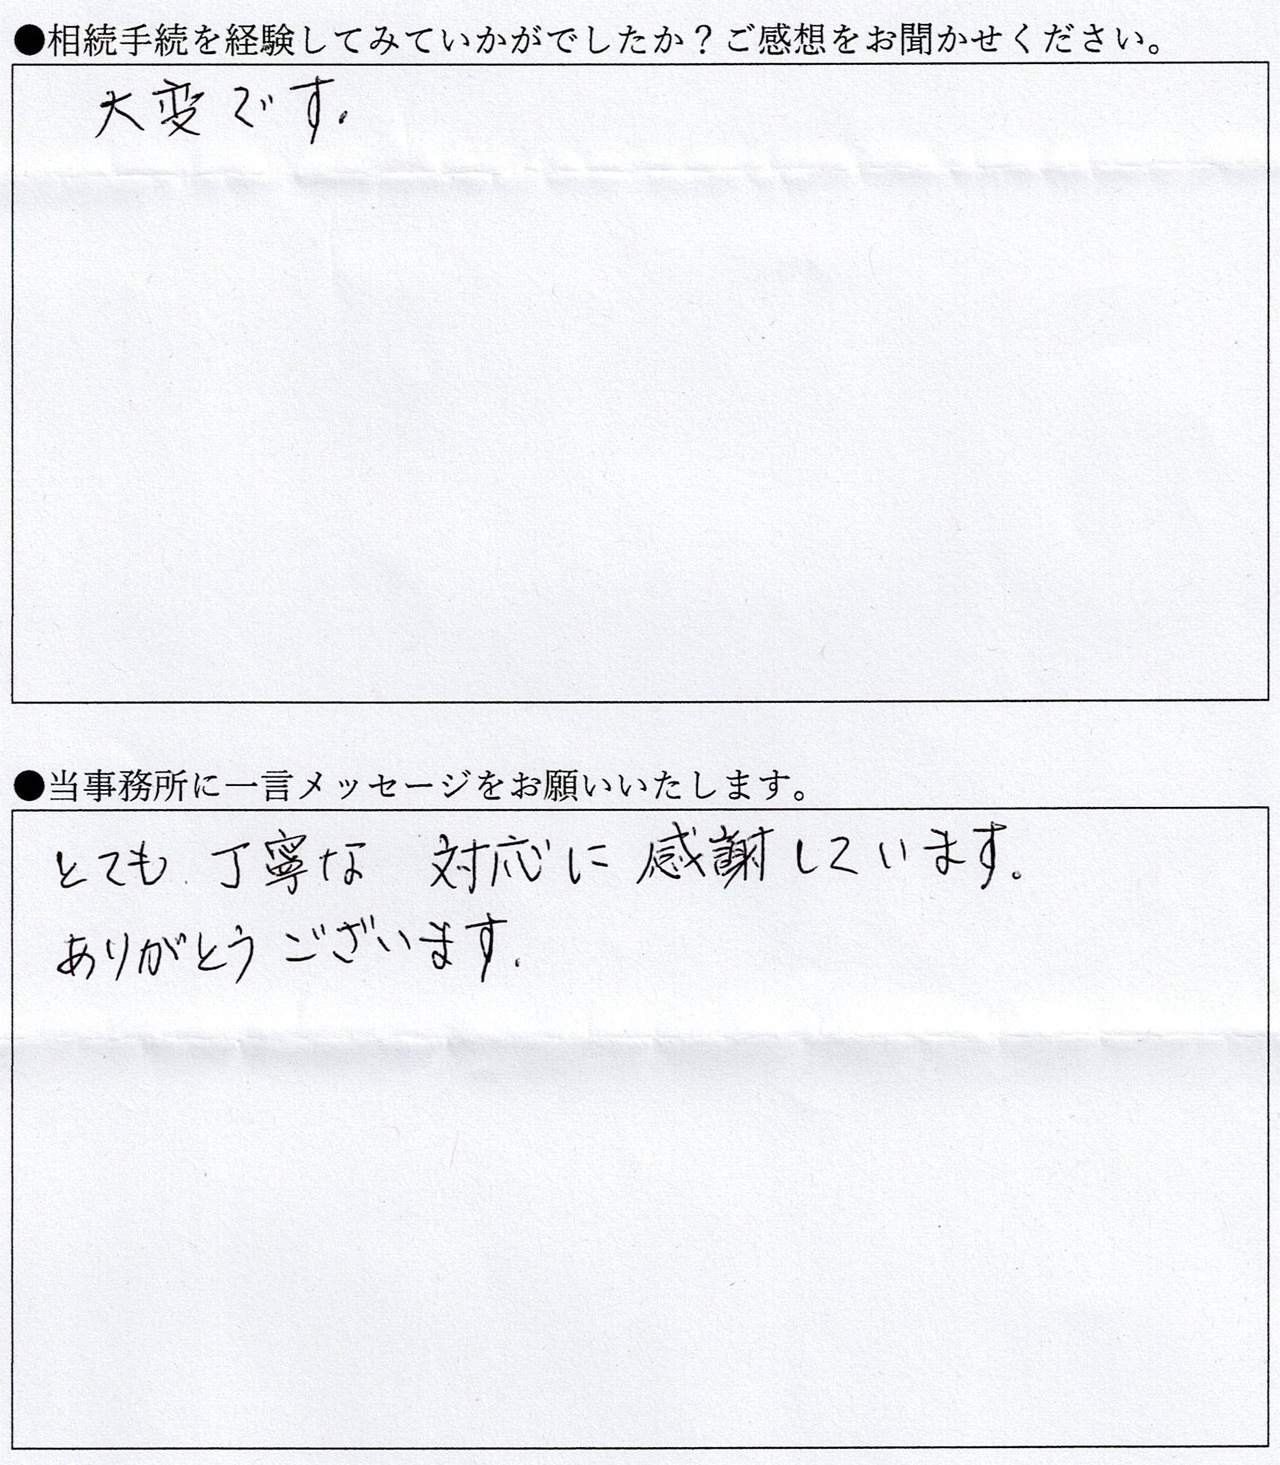 ●相続手続を経験してみていかがでしたか？ご感想をお聞かせください。
大変です。
●当事務所に一言メッセージをお願いいたします。
とても丁寧な 対応に 感謝しています。
ありがとうございます。